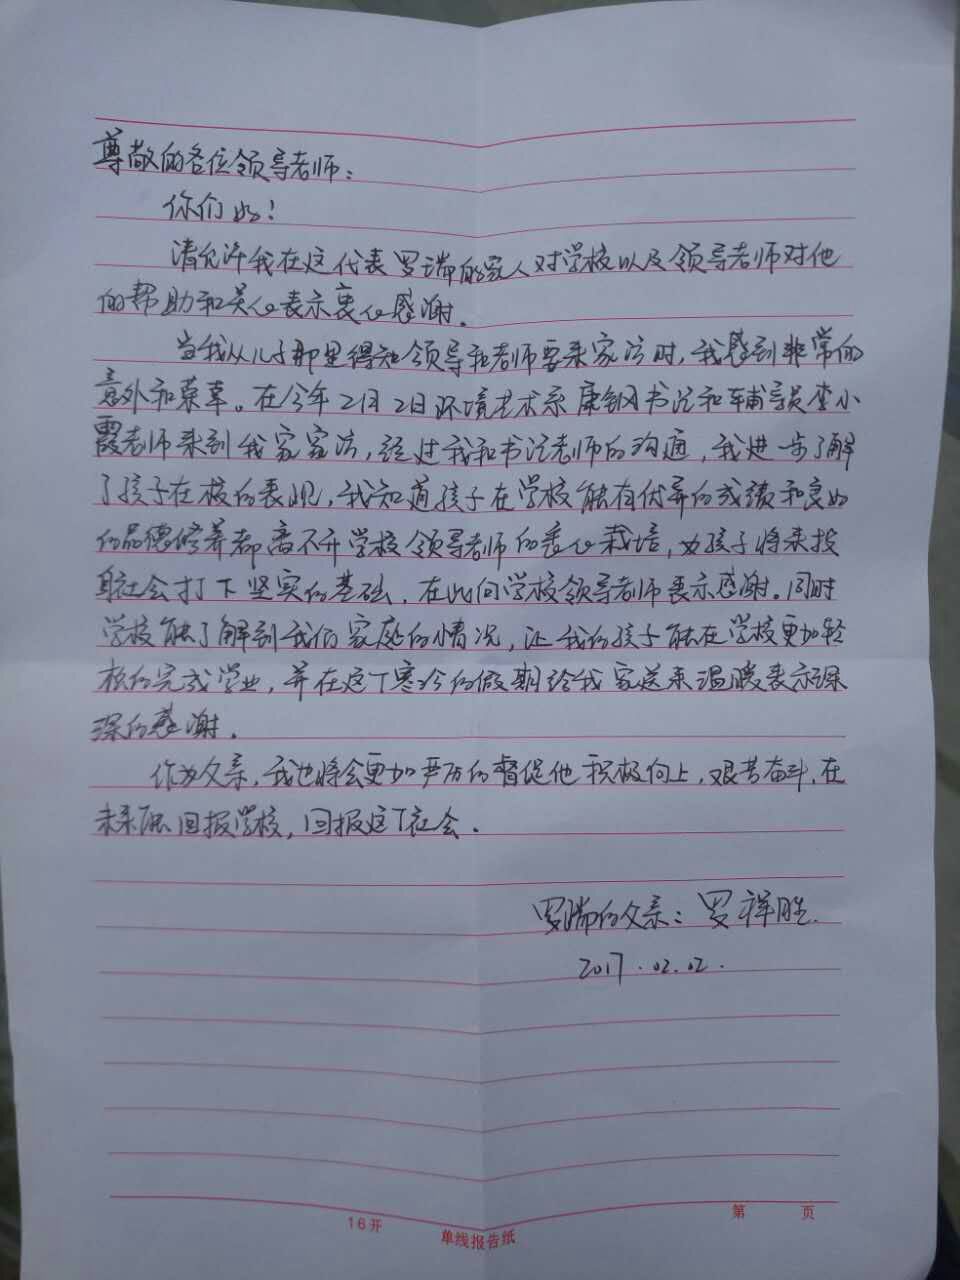 尊敬的各位领导老师：
你们好！
请允许我在这代表罗瑞的家人对学校以及领导老师对他
的帮助和关心表示衷心感谢.
当我从儿子那里得知领导和老师要来家访时,我感到非常的
意外和荣幸。在今年2月2日环境艺术系康钢书记和辅导员李小
霞老师来到我家家访,经过我和书记老师的沟通,我进一步了解
了孩子在校的表现,我知道孩子在学校能有优异的成绩和良好
的品德修养都离不开学校领导老师的衷心栽培,为孩子将来投
身社会打下坚实的基础,在此向学校领导老师表示感谢.同时
学校能了解到我们家庭的情况,让我的孩子能在学校更加轻
松的完成学业,并在这个寒冷的假期给我家送来温暖表示深
深的感谢.
作为父亲,我也将会更加严厉的督促他积极向上,艰苦奋斗,在
未来能回报学校,回报这个社会.
罗瑞的父亲：罗祥胜.
2017.02.02.
16开
单线报告纸
第 页